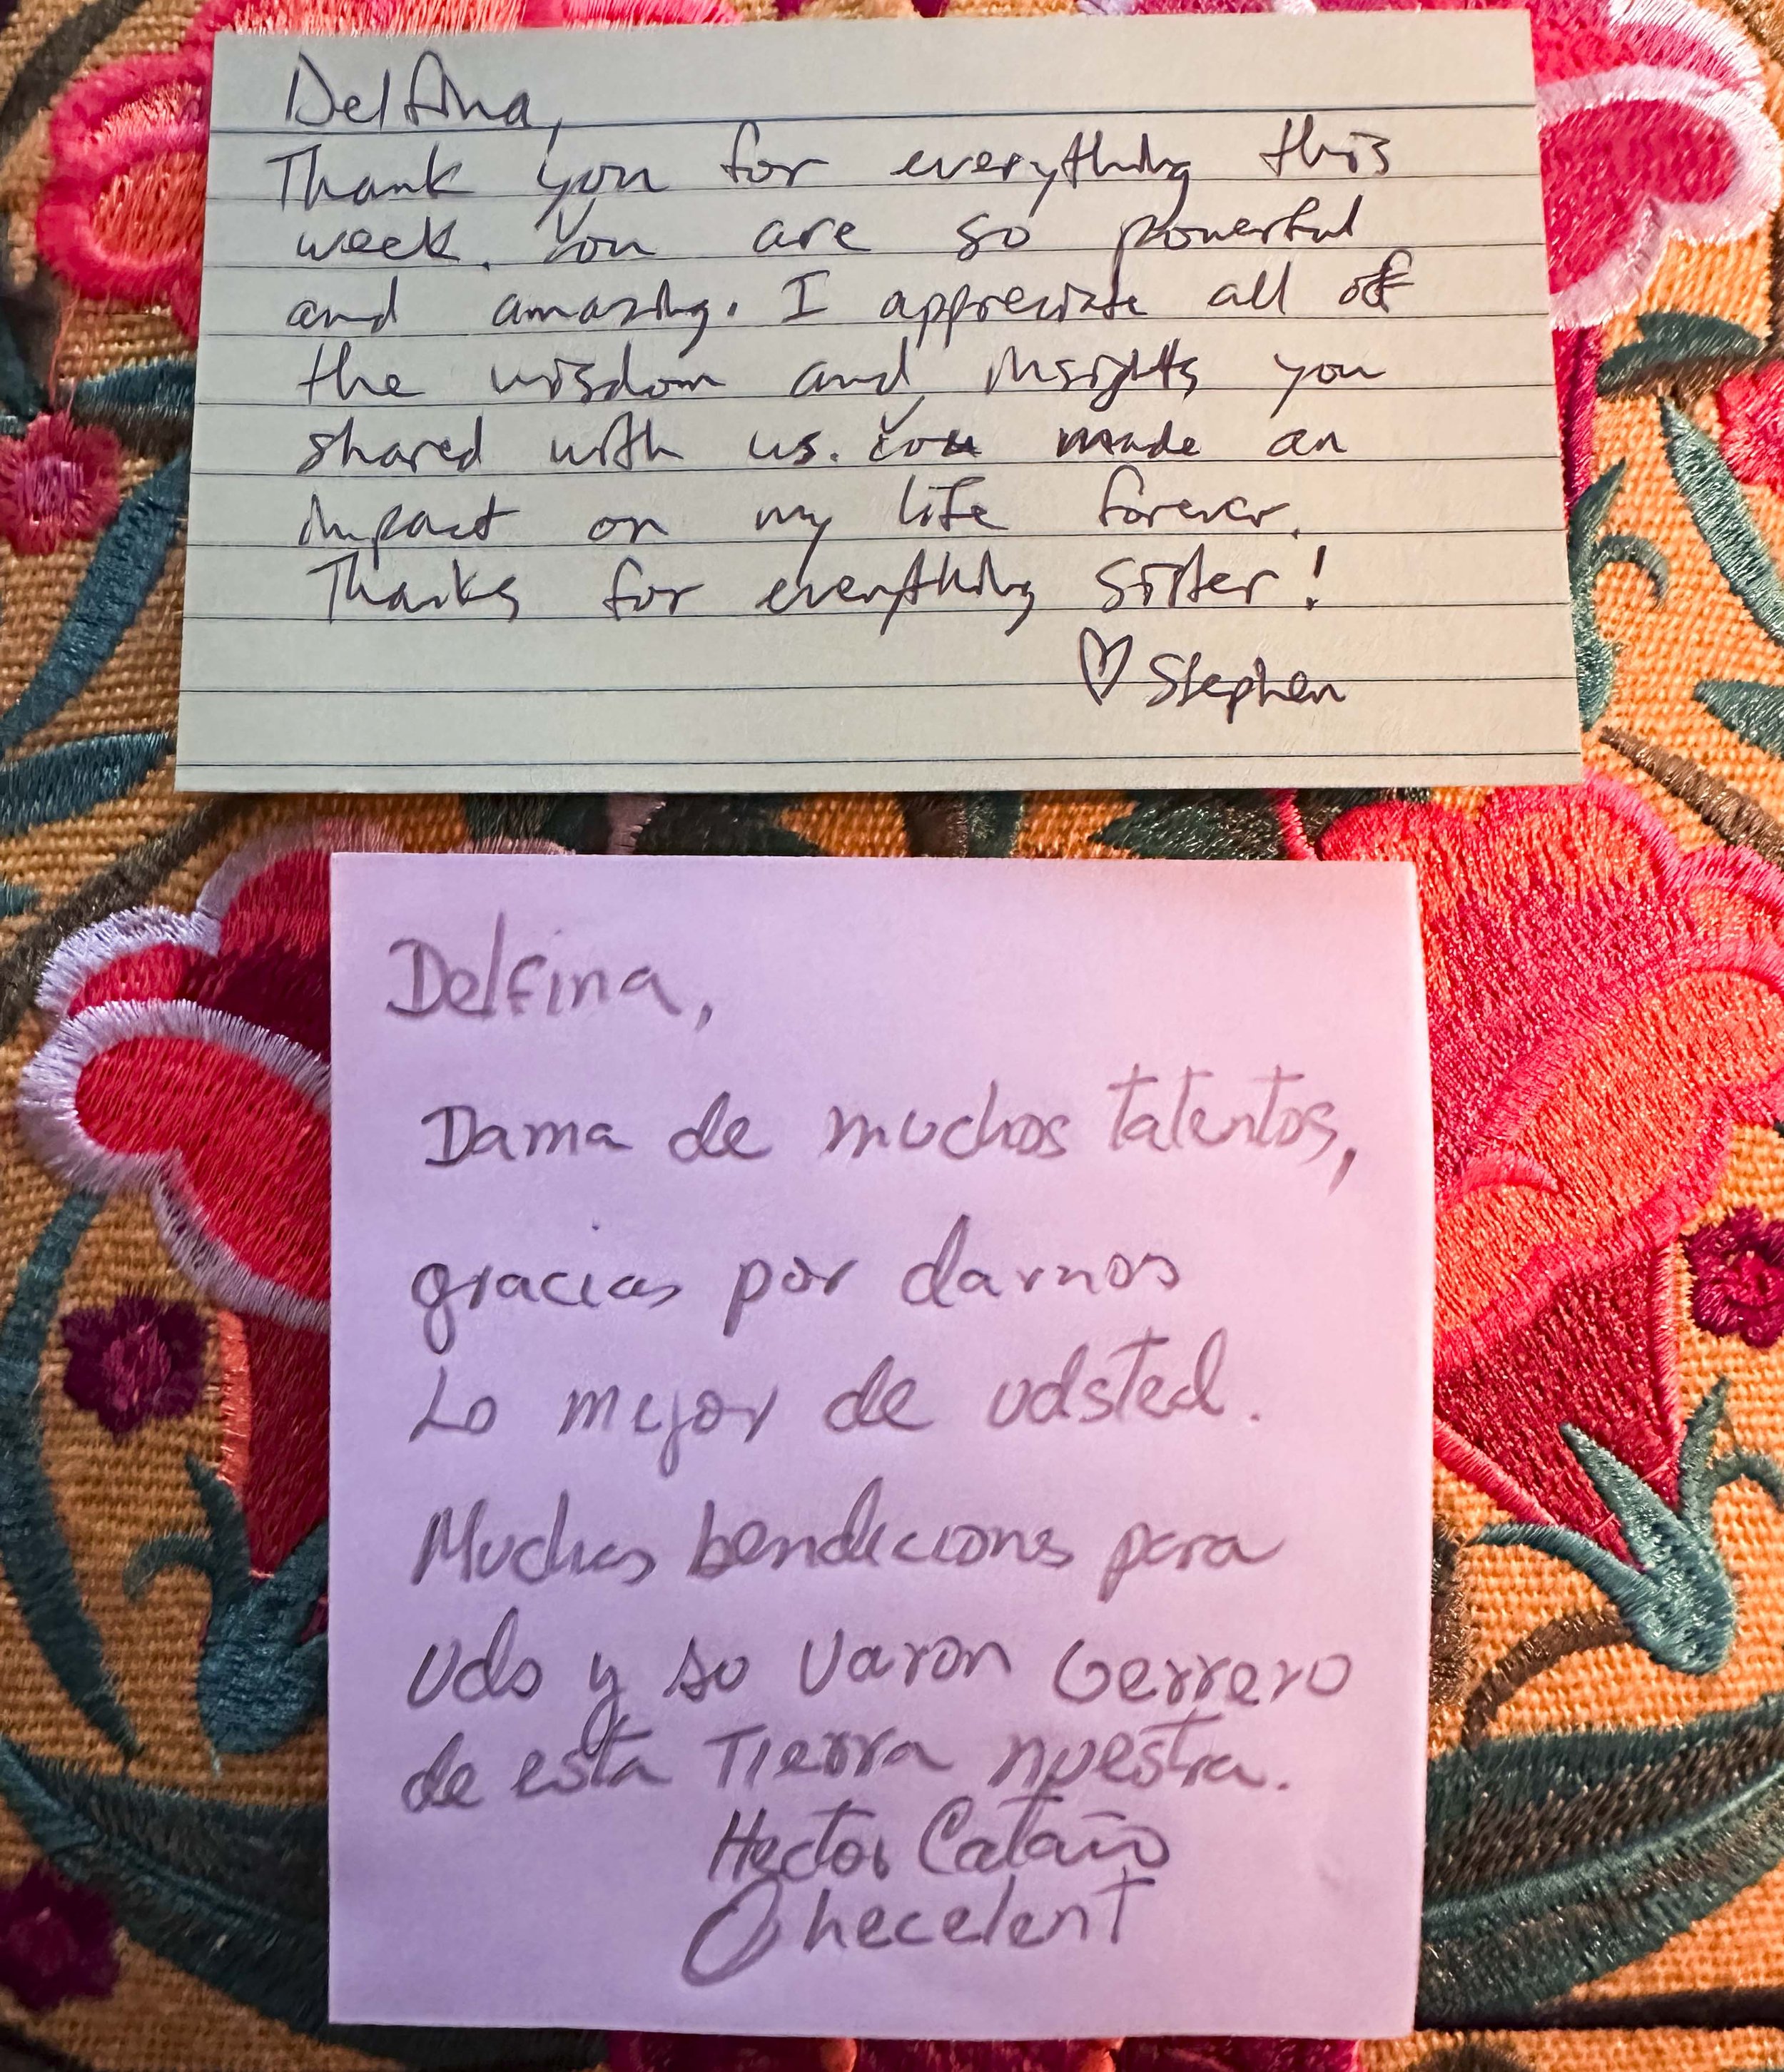 Delfina,
Thank you for everything this
week. You are so powerful
and amazing. I appreciate all of
the wisdom and insights you
shared with us. You made an
impact on my life forever.
Thanks for everything sister!
♡ Stephen
Delfina,
Dama de muchos talentos,
gracias por darnos
Lo mejor de udsted.
Muchas bendiciones para
Uds y su Varon Gerrero
de esta Tierra nuestra.
Hector Cataño
@hecelent